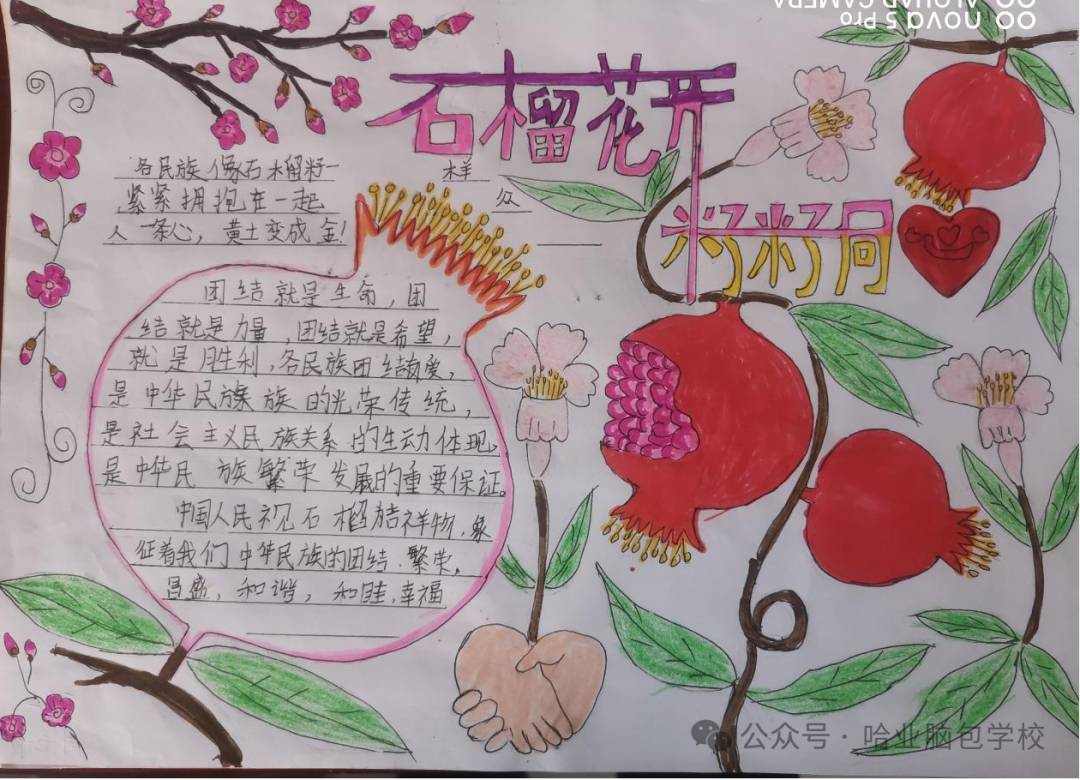 石榴花开
籽籽同
各民族像石榴籽一样
紧紧拥抱在一起 众
人一条心，黄土变成金！
团结就是生命，团
结就是力量，团结就是希望，
就是胜利，各民族团结友爱，
是中华民族族的光荣传统，
是社会主义民族关系的生动体现。
是中华民族繁荣发展的重要保证。
中国人民视石榴为吉祥物，象
征着我们中华民族的团结、繁荣。
昌盛，和谐，和睦，幸福
公众号·哈业脑包学校
AI QUAD CAMERA
nova 5 Pro